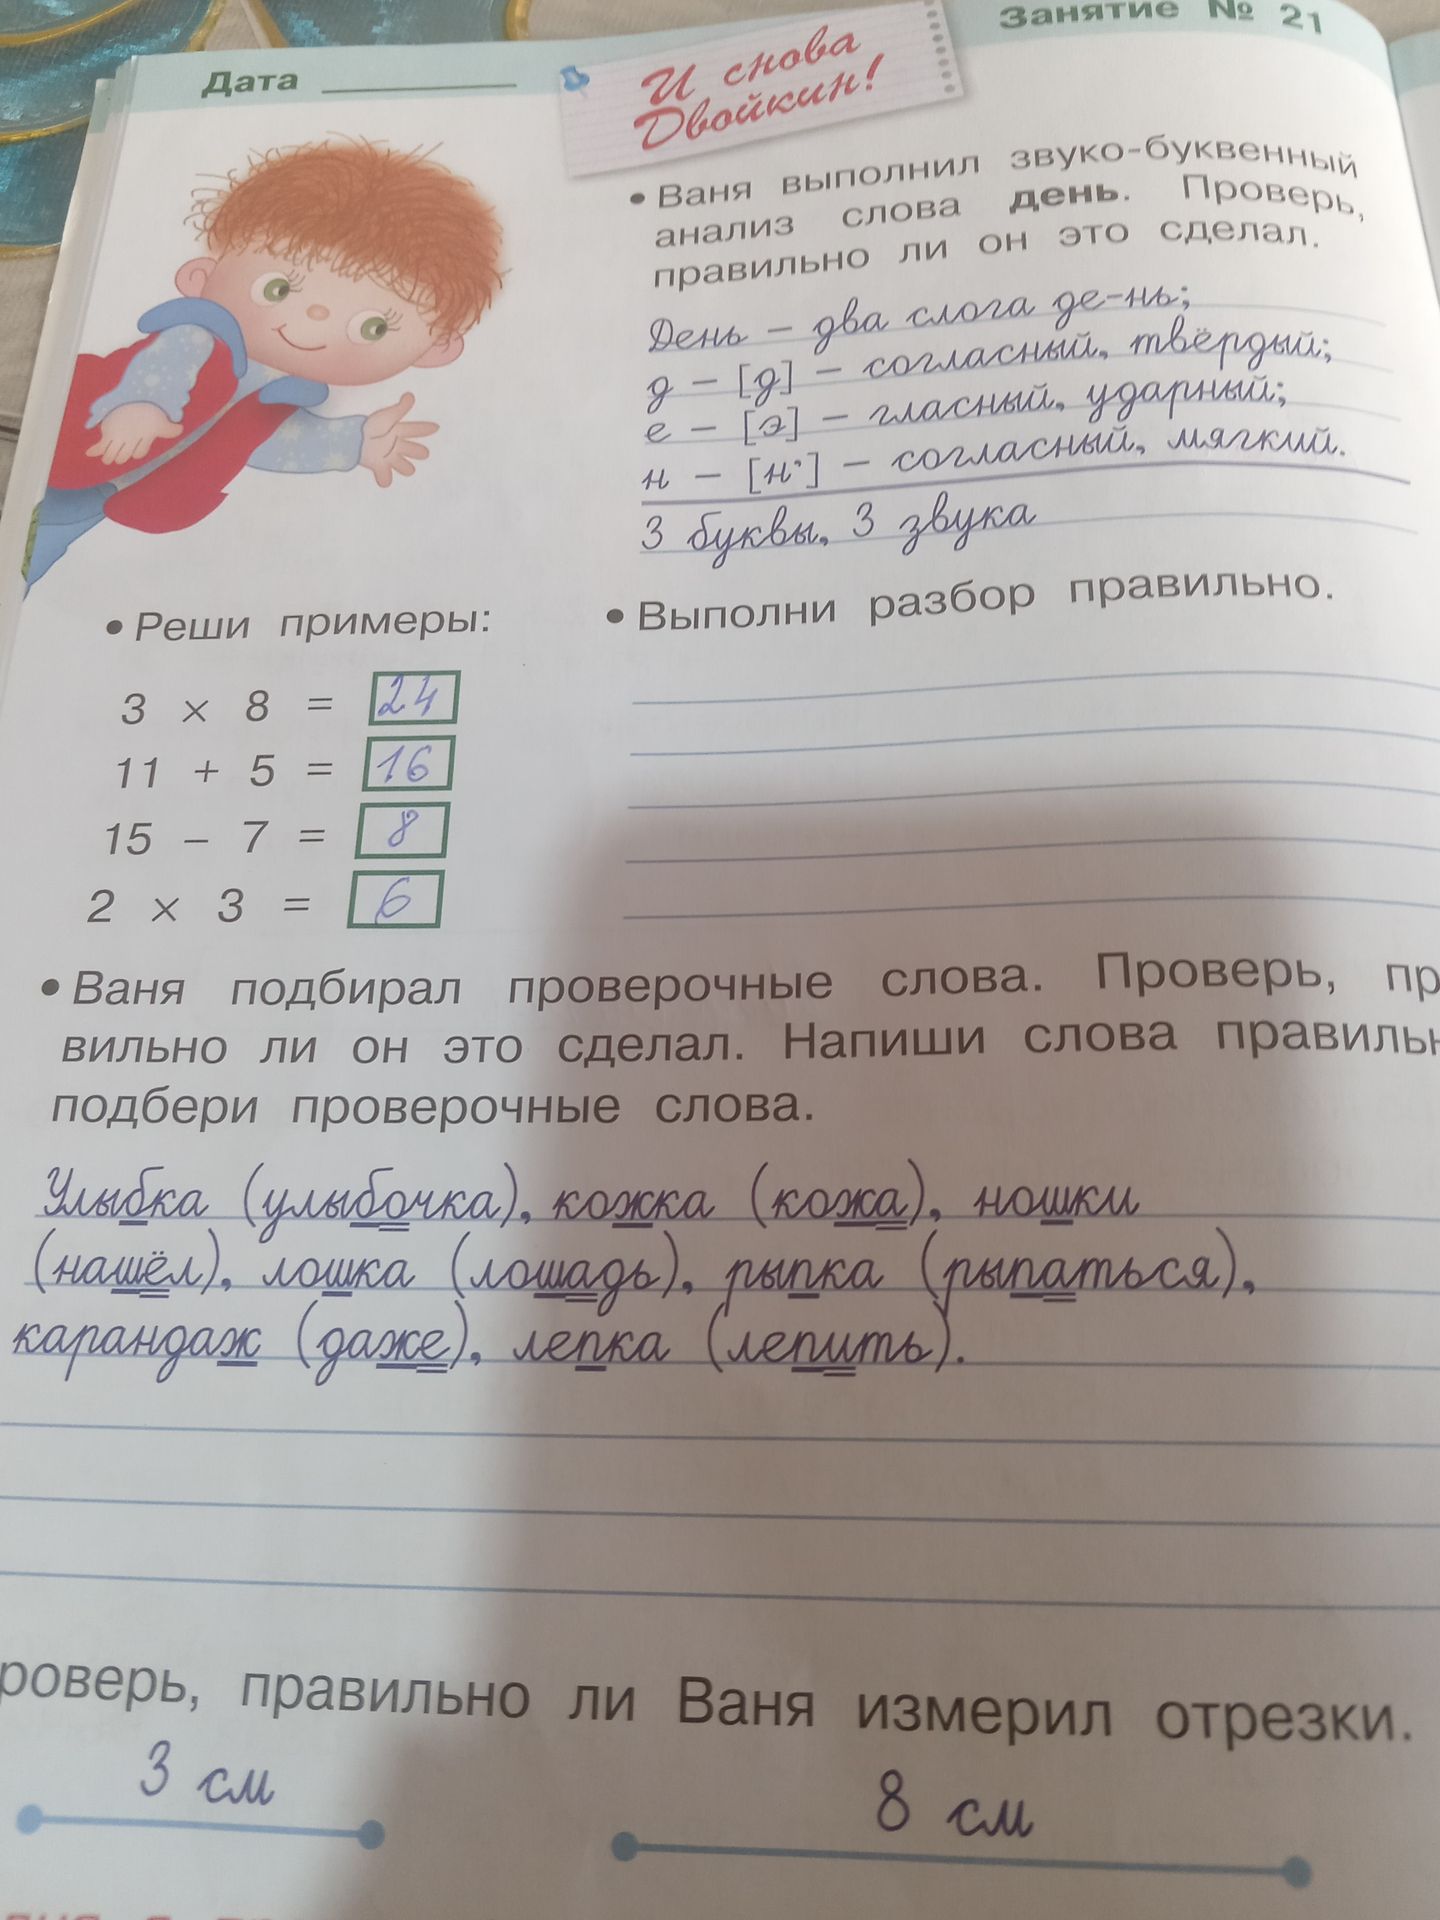 Занятие № 21
Дата
И снова
Двойкин!
• Ваня выполнил звуко-буквенный
анализ слова день. Проверь,
правильно ли он это сделал.
День – два слога де-нь;
д – [д] – согласный, твёрдый;
е – [э] – гласный, ударный;
н – [н'] – согласный, мягкий.
3 буквы, 3 звука
• Реши примеры:
3 × 8 = 24
11 + 5 = 16
15 – 7 = 8
2 × 3 = 6
• Выполни разбор правильно.
• Ваня подбирал проверочные слова. Проверь, пр
вильно ли он это сделал. Напиши слова правильн
подбери проверочные слова.
Улыбка (улыбочка), кожка (кожа), ношки
(нашёл), лошка (лошадь), рыпка (рыпаться),
карандаж (даже), лепка (лепить).
роверь, правильно ли Ваня измерил отрезки.
3 см
8 см